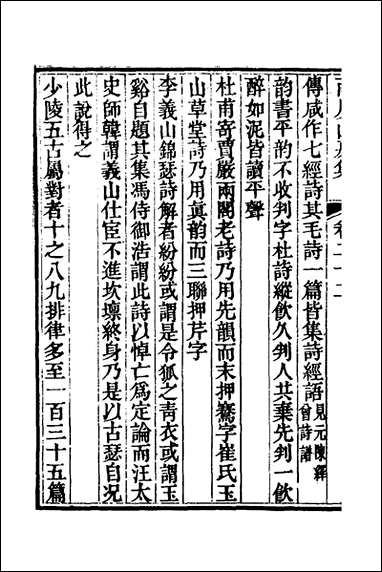 傅咸作七經詩其毛詩一篇皆集詩經語見元陳繹曾詩譜
韵書平韵不收判字杜詩縱飲久判人共棄先判一飲
醉如泥皆讀平聲
杜甫寄賈嚴兩閣老詩乃用先韻而末押騫字崔氏玉
山草堂詩乃用眞韵而三聯押芹字
李義山錦瑟詩解者紛紛或謂是令狐之青衣或謂玉
谿自題其集馮侍御浩謂此詩以悼亡爲定論而汪太
史師韓謂義山仕宦不進坎壈終身乃是以古瑟自况
此說得之
少陵五古屬對者十之八九排律多至一百三十五篇